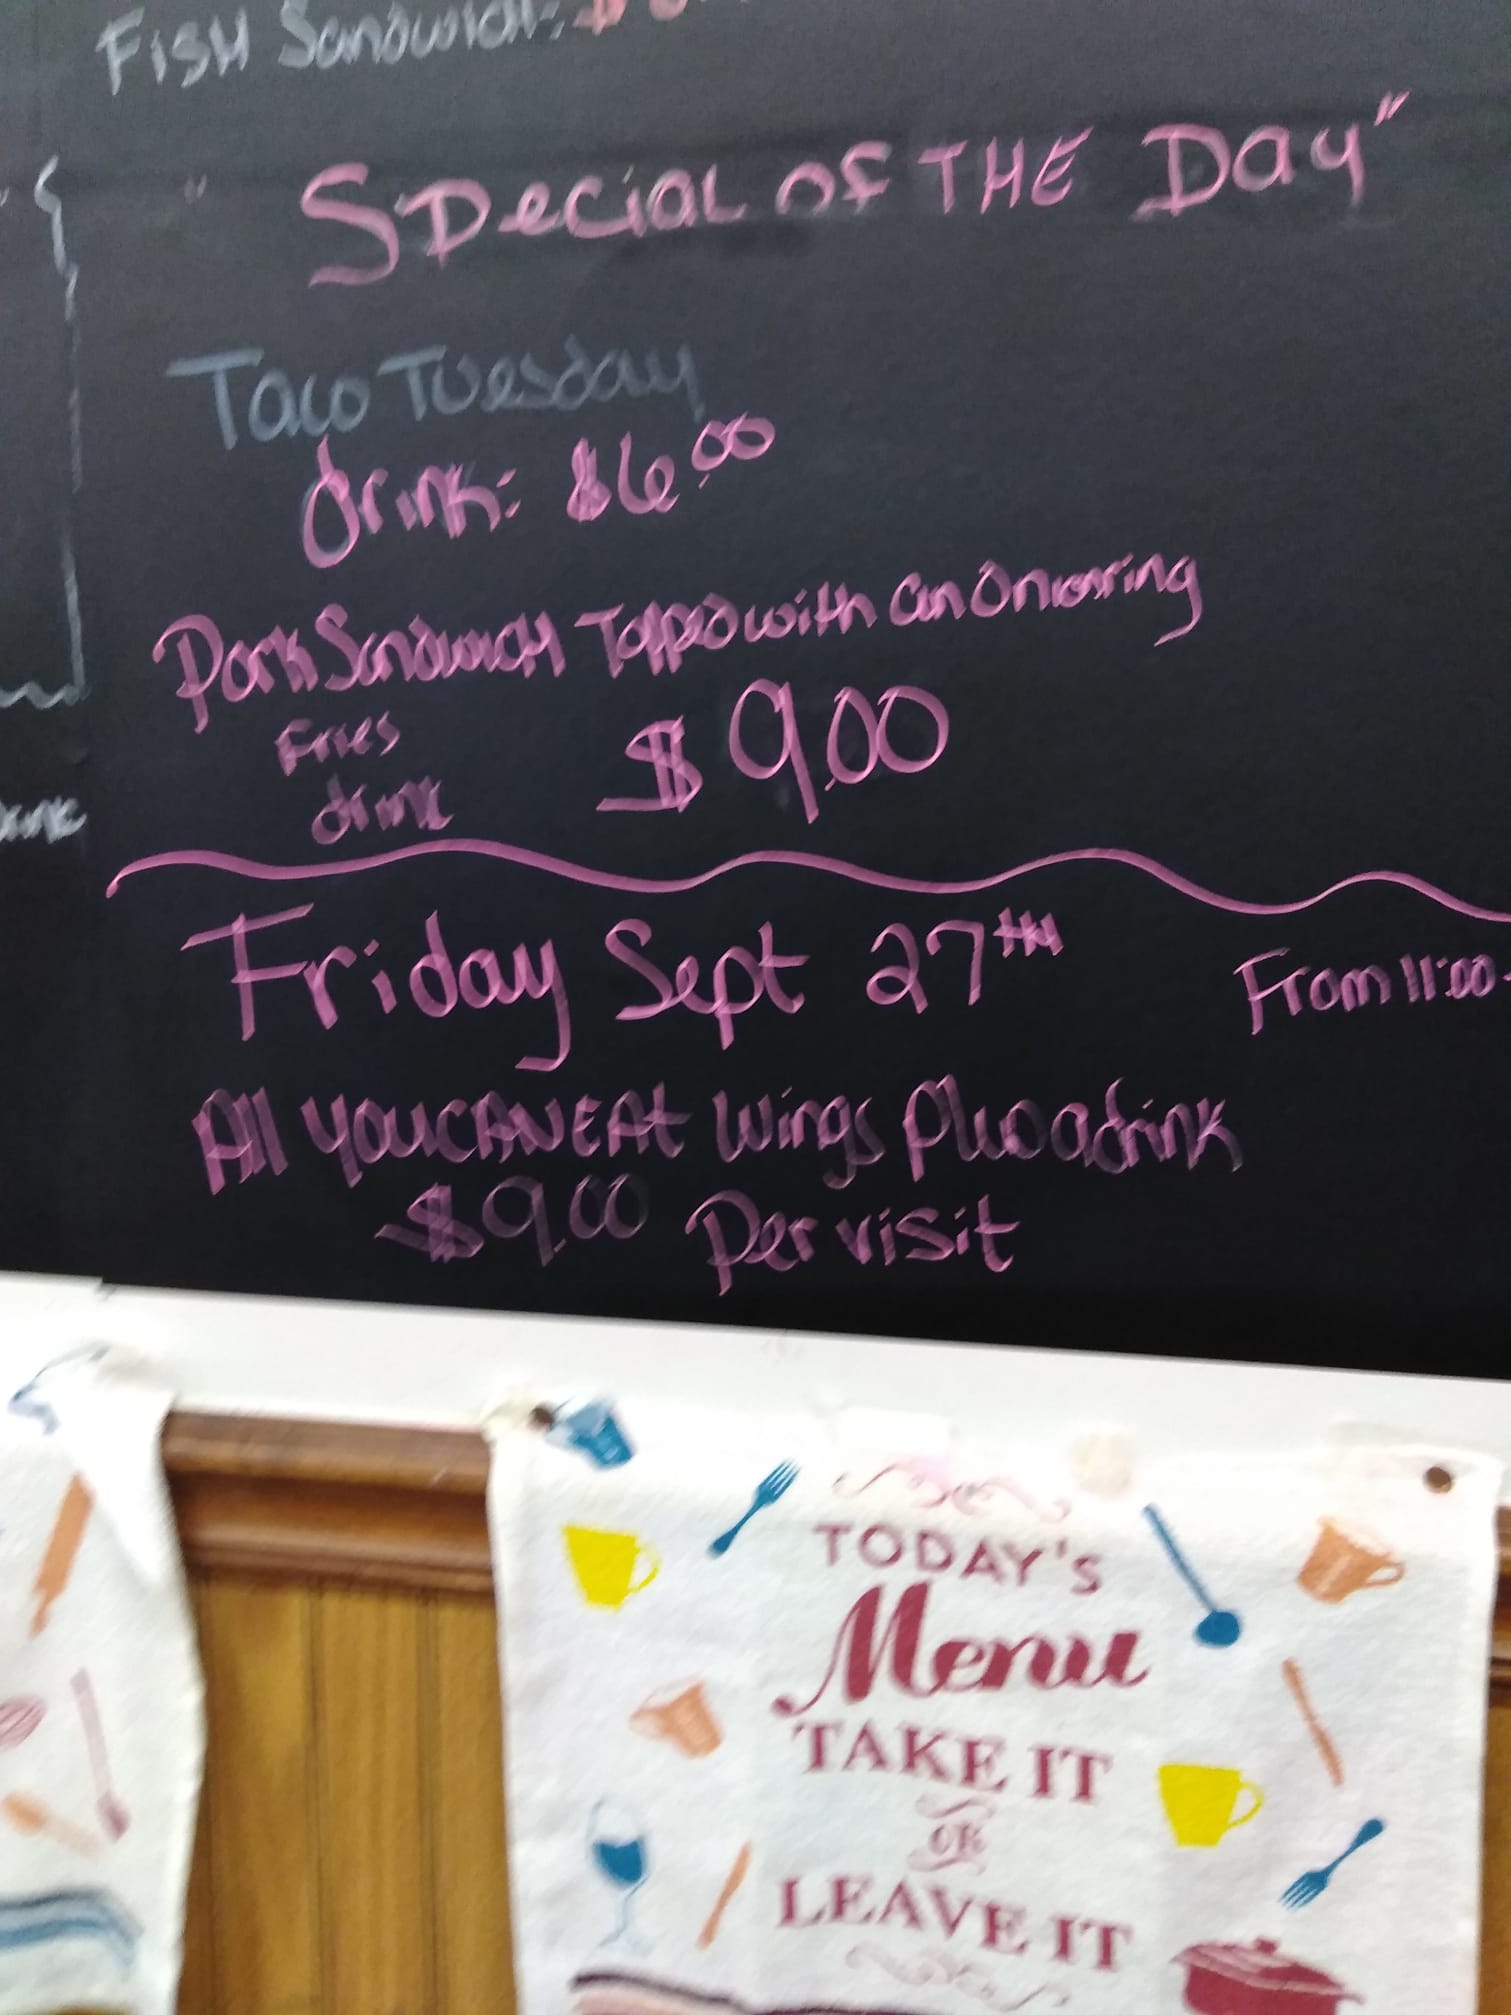 FISH Sandwich: $
"Special of THE Day"
Taco Tuesday
drink: $6.00
Pork Sandwich Topped with an Onion ring
Fries
$9.00
drink
Friday Sept 27TH
From 11:00-
All YOU CAN EAt Wings Plus a drink
$9.00 Per visit
TODAY'S
Menu
TAKE IT
OR
LEAVE IT